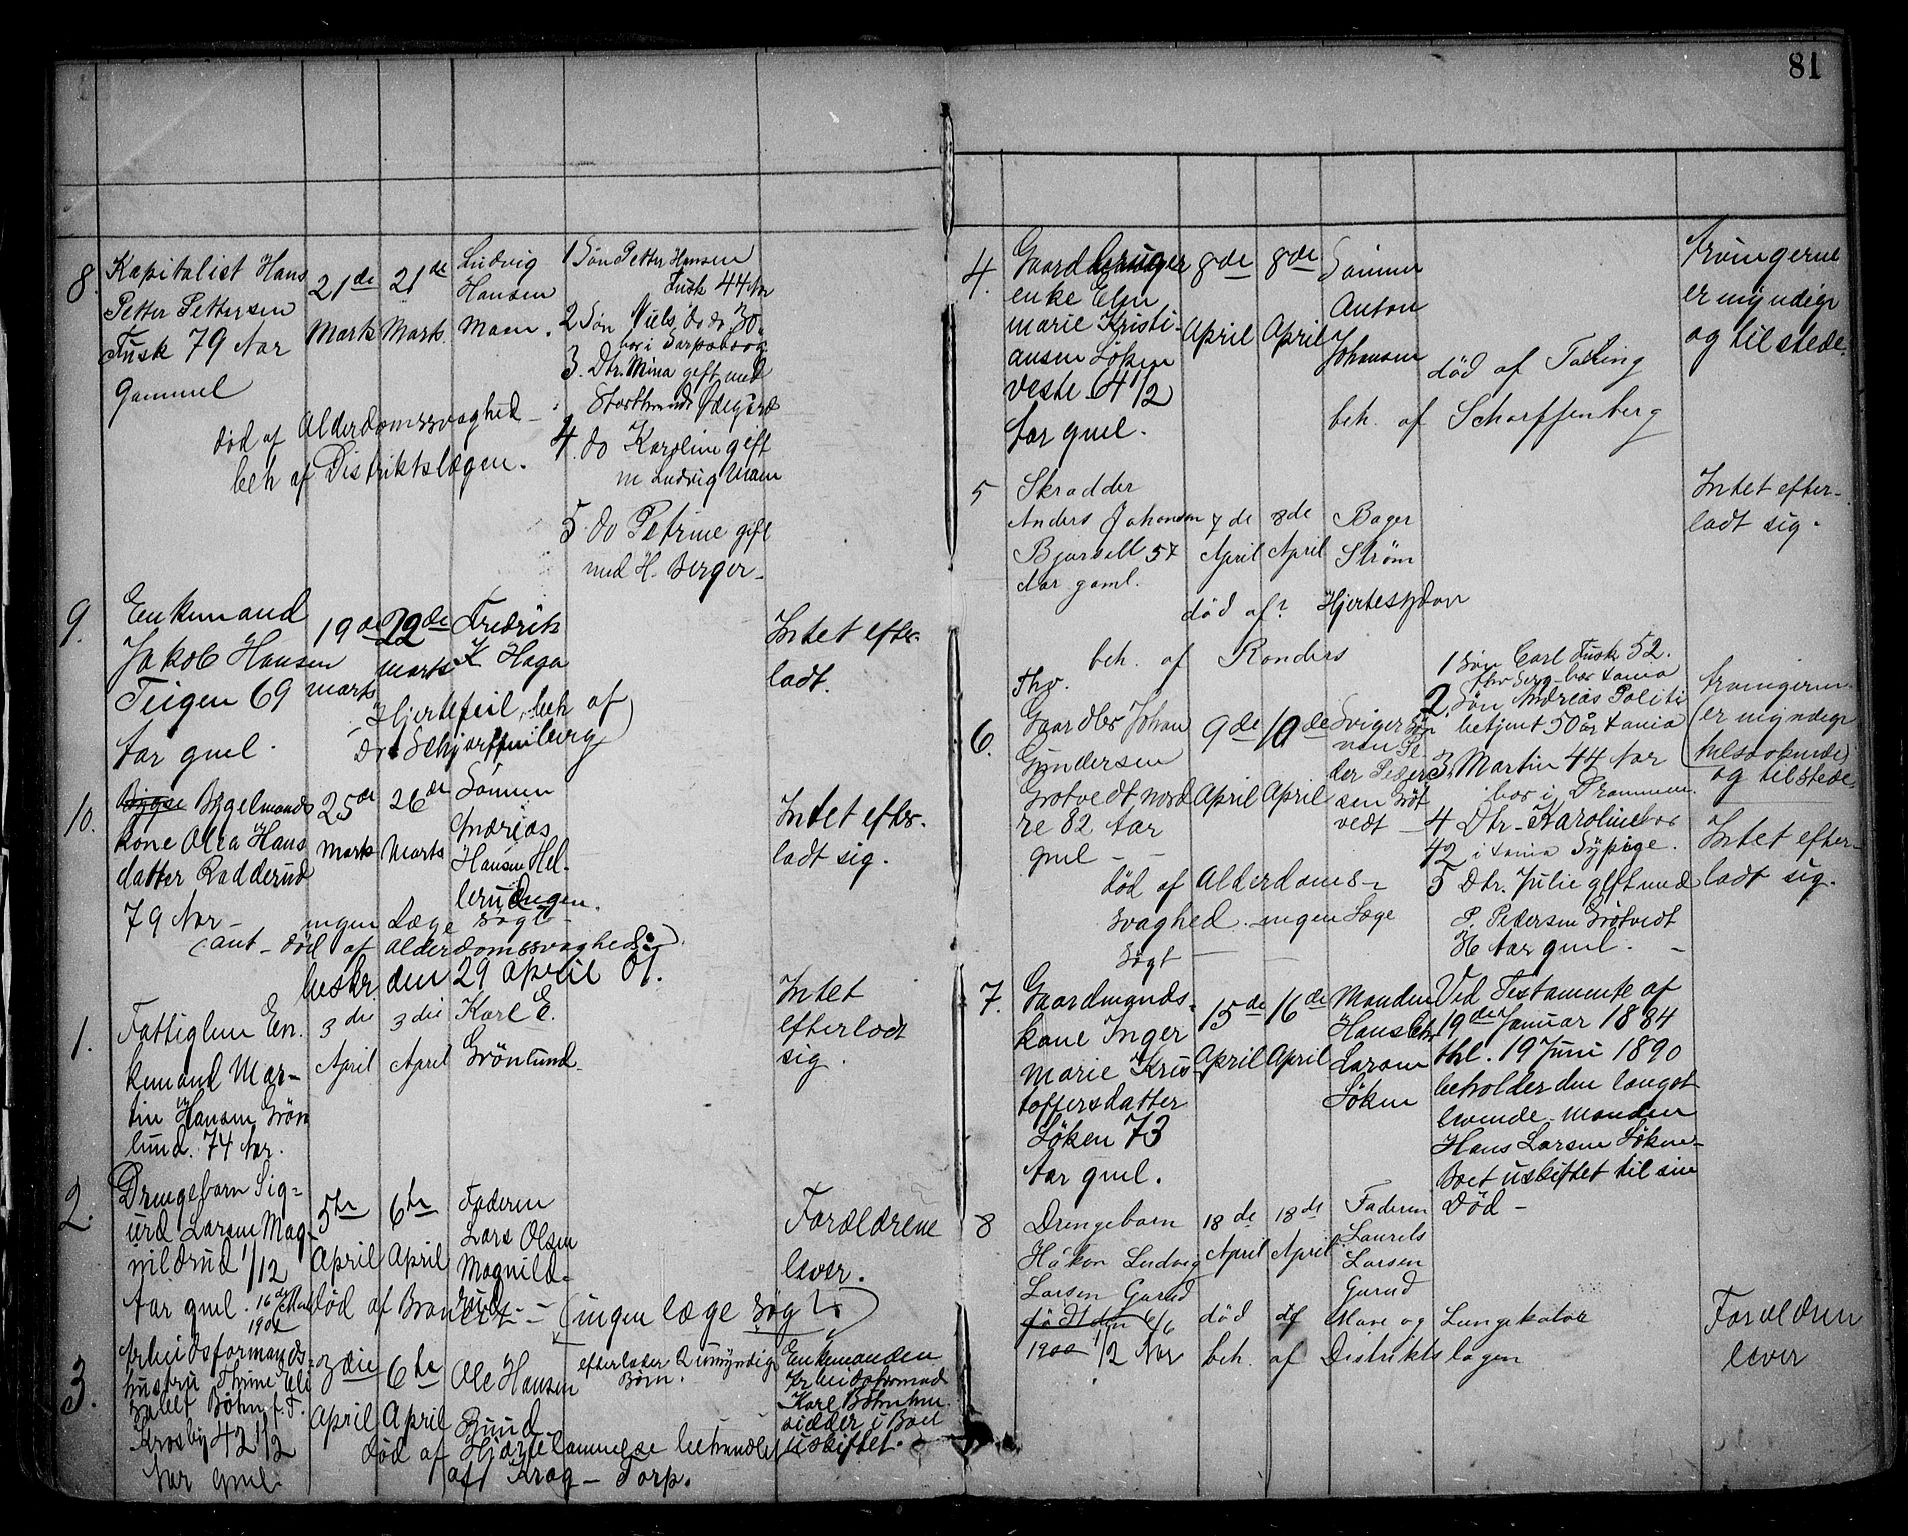 81
8. Kapitalist Hans
Petter Pettersen
Fusk 79 Aar
gammel
21de
Marts
21de
Marts
Ludvig
Hansen
Mam.
1 Søn Petter Hansen
Fusk 44 Aar
2 Søn Niels do do 30
bor i Sarpsborg
3. Dtr. Mina gift med
Ødegård
4. do Karoline gift
m Ludvig Mam
5. do Petrine gift
med H. Berger
død af Alderdomssvaghed
beh af Distriktslægen.
9. Enkemand
Jakob Hansen
Teigen 69
Aar gml.
19de
marts
22de
marts
Fredrik
K Haga
Intet efter-
ladt.
Hjertefeil, beh af
Dr Scharffenberg)
10. Bygselmands
kone Olea Hans
datter Radderud
79 Aar -
25de
Marts
26de
Marts
Sønnen
Andreas
Hansen Hel-
lerudengen.
Intet efter-
ladt sig.
ingen Læge søgt
(ant- død af alderdomssvaghed).
beskr. den 29 april 01.
1. Fattiglem En-
kemand Mar-
tin Hansen Grön
lund. 74 Aar.
3die
April
3die
April
Karl E.
Grönlund
Intet
efterladt
sig.
2. Drengebarn Sig-
urd Larsen Mag-
nildrud 1/12
Aar gml.
5te
April
6te
April
Faderen
Lars Olsen
Magnild-
rud
Forældrene
lever.
død af
(ingen læge søgt)
3. Arbeidsformands-
hustru Thrine Eli
sabet Böhn f. F.
Krosby 42 1/2
Aar gml.
3die
April
6te
April
Ole Hansen
Bund
efterlader 2 umyndige
Børn.
Enkemanden
Arbeidsformand
Karl Böhn hen
sidder i Boet
uskiftet.
død af Hjertelammelse behandlet
af Krag - Torp.
4. Gaardbruger
enke Elen
marie Kristi-
ansen Löken
vestre 64 1/2
Aar gml.
8de
April
8de
April
Sønnen
Anton
Johansen
Arvingerne
er myndige
og tilstede.
død af Tæring
beh. af Scharffenberg
5 Skrædder
Anders Johansen
Bjursell 57
Aar gaml.
7de
April
8de
April
Bager
Strøm
Intet efter-
ladt sig.
død af? Hjertesygdom
beh. af Randers
6. Thv.
Gaardbr Johan
Gundersen
Grøtvedt nord
re 82 Aar
gml -
9de
April
10de
April
Svigersøn
Peder
sen Grøt
vedt
1 Søn Carl Fusk 52.
2. Søn Andreas Politi
betjent 50 år
3. Martin 44 Aar
bor i Drammen.
4 Dtr- Karoline bor
42 i Sypige.
5 Dtr. Julie gift med
P. Pedersen Grøtvedt
36 Aar gml. -
Arvingerne
er myndige
og tilstede.
Intet efter-
ladt sig.
død af Alderdoms-
svaghed. ingen Læge
søgt
7. Gaardmands-
kone Inger
Marie Kris-
toffersdatter
Löken 73
Aar gml.
15de
April
16de
April
Manden
Hans
Larsen
Löken
Ved Testamente af
19de Januar 1884
thl. 19 Juni 1890
beholder den længst
levende Manden
Hans Larsen Löken
Boet uskiftet til sin
Død -
8 Drengebarn
Håkon Ludvig
Larsen Garud
født den 6/6
1900 1/2 Aar
18de
April
18de
April
Faderen
Laurits
Larsen
Garud
Forældren
lever
død af Mave og Lungekatar
beh. af Distriktslægen